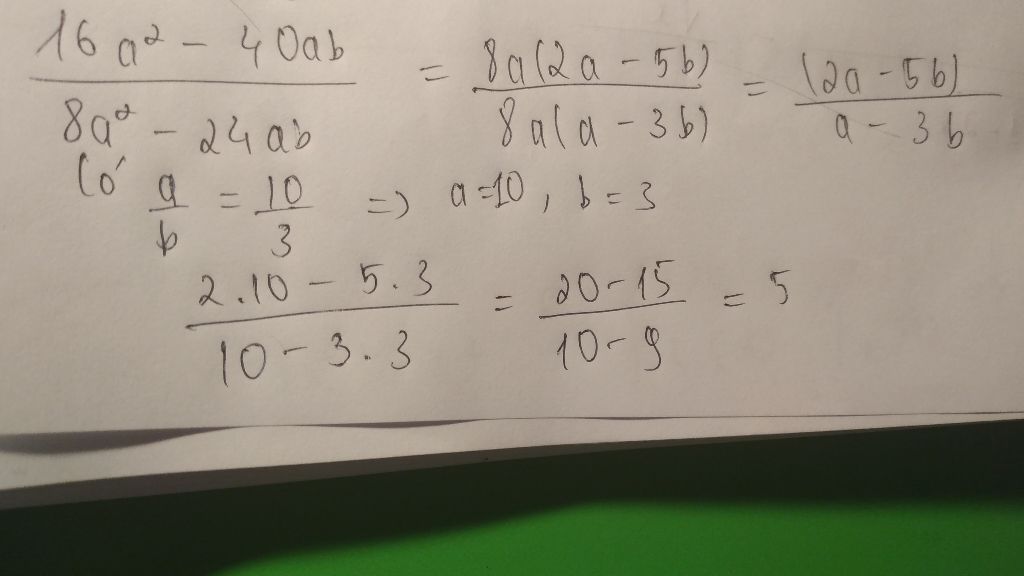 (16a² - 40ab)/(8a² - 24ab) = 8a(2a - 5b)/8a(a - 3b) = (2a - 5b)/a - 3b
Có a/b = 10/3 => a=10, b=3
(2.10 - 5.3)/(10 - 3.3) = (20-15)/(10-9) = 5